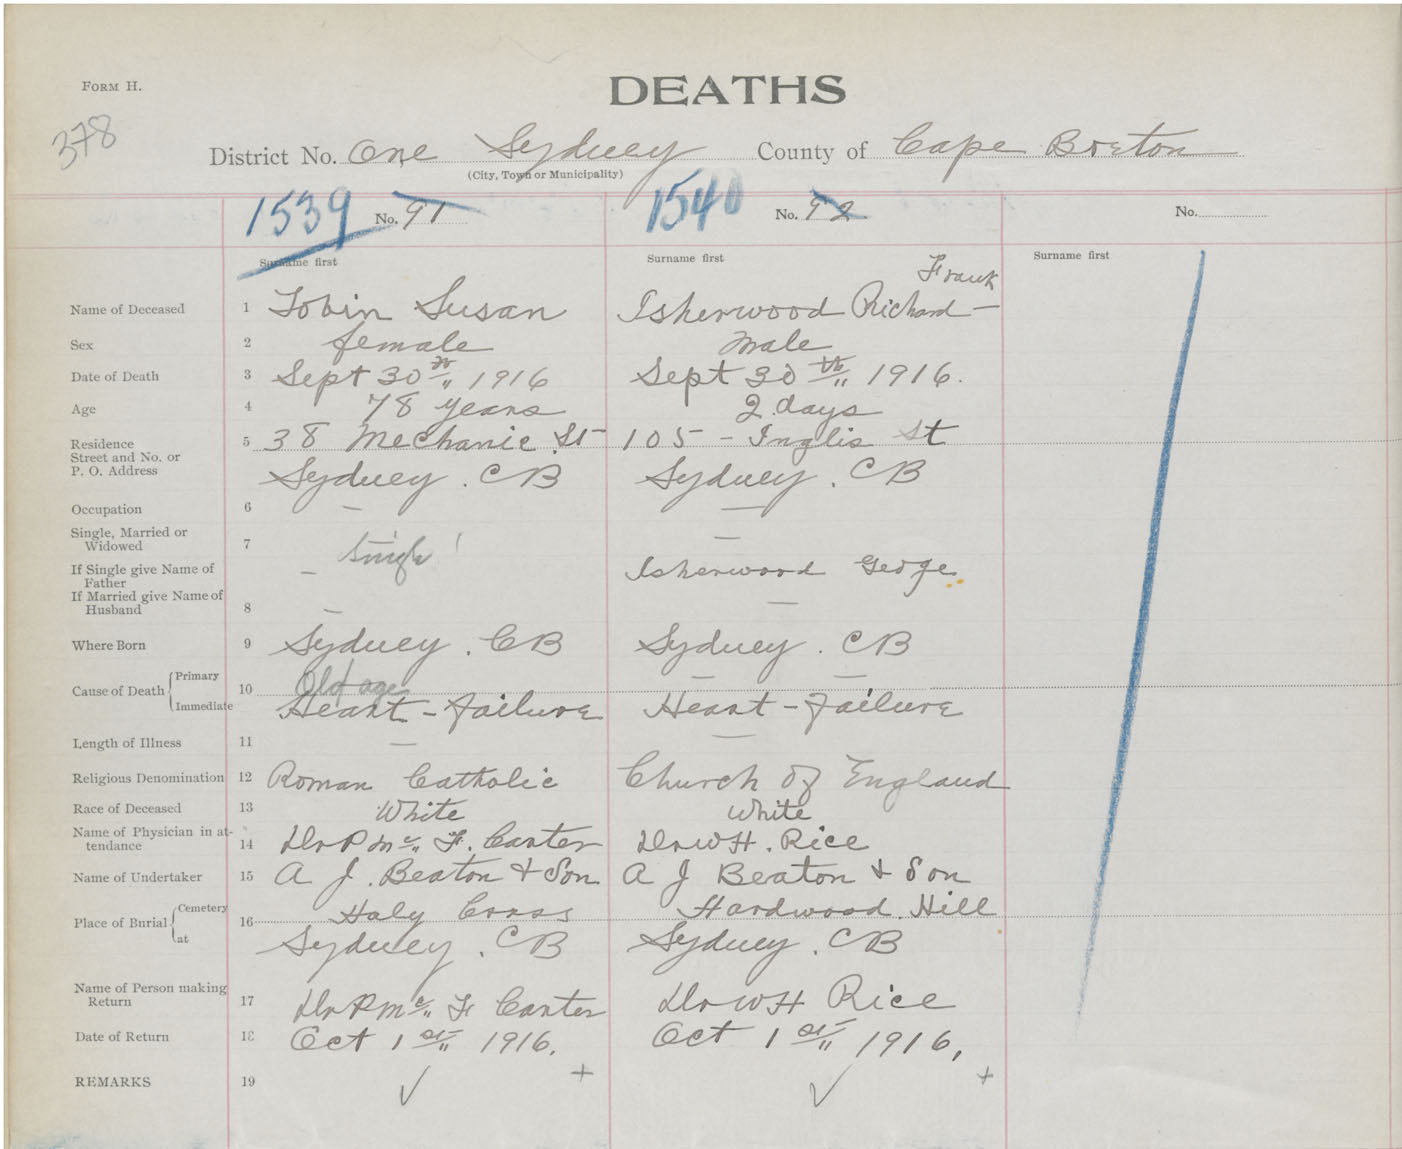 FORM H.
DEATHS
378
District No. One Sydney County of Cape Breton
(City, Town or Municipality)
1539 No. 91 1540 No. 92 No.
Surname first Surname first Surname first
Frank
Name of Deceased 1 Tobin Susan Isherwood Richard —
Sex 2 female male
Date of Death 3 Sept 30th 1916 Sept 30th 1916.
Age 4 78 years 2 days
Residence 5 38 Mechanic St 105 - Inglis St
Street and No. or
P. O. Address Sydney. CB Sydney. CB
Occupation 6 — —
Single, Married or
Widowed 7 Single —
If Single give Name of
Father — Isherwood George
If Married give Name of
Husband 8 — —
Where Born 9 Sydney. CB Sydney. CB
Cause of Death { Primary 10 Old age — —
Immediate Heart - failure Heart - failure
Length of Illness 11 — —
Religious Denomination 12 Roman Catholic Church of England
Race of Deceased 13 White White
Name of Physician in at-
tendance 14 Dr P Mc F. Carter Dr W H. Rice
Name of Undertaker 15 A J. Beaton + Son A J Beaton + Son
Place of Burial { Cemetery 16 Holy Cross Hardwood. Hill
at Sydney. CB Sydney. CB
Name of Person making
Return 17 Dr P Mc F Carter Dr W H Rice
Date of Return 18 Oct 1st 1916. Oct 1st 1916,
REMARKS 19 ✓ + ✓ +